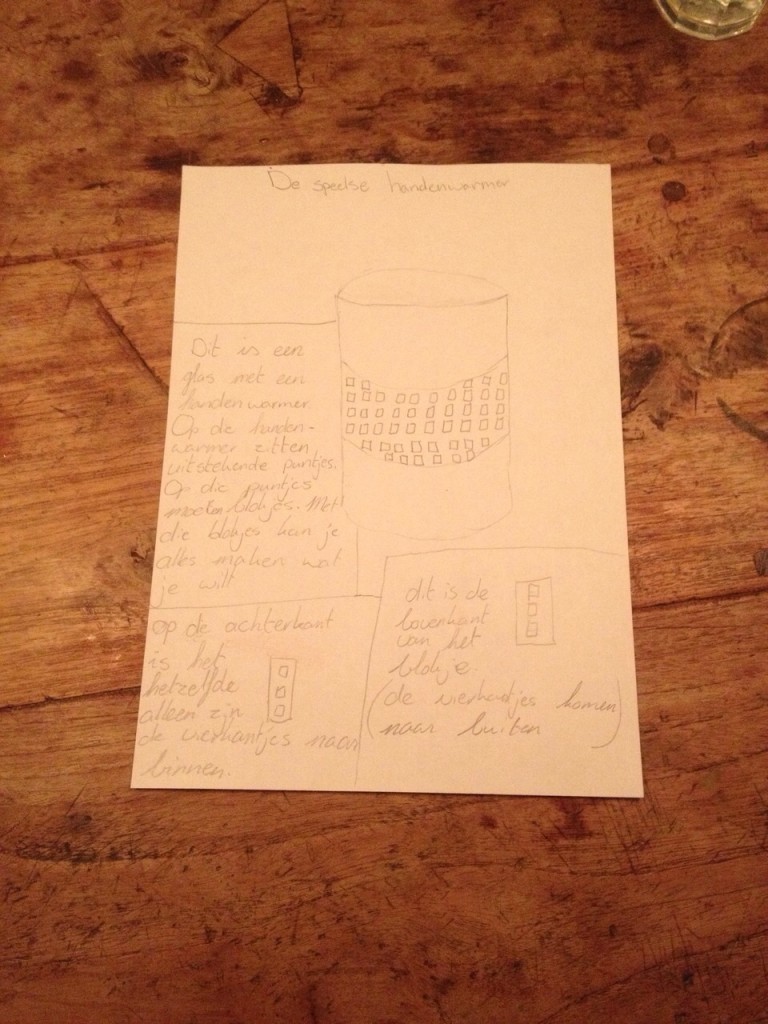 De speelse handenwarmer
Dit is een
glas met een
handenwarmer
Op de handen-
warmer zitten
uitstekende puntjes.
Op die puntjes
moeten blokjes. Met
die blokjes kan je
alles maken wat
je wilt
op de achterkant
is het
hetzelfde
alleen zijn
de vierkantjes naar
binnen.
dit is de
bovenkant
van het
blokje.
(de vierkantjes komen)
naar buiten